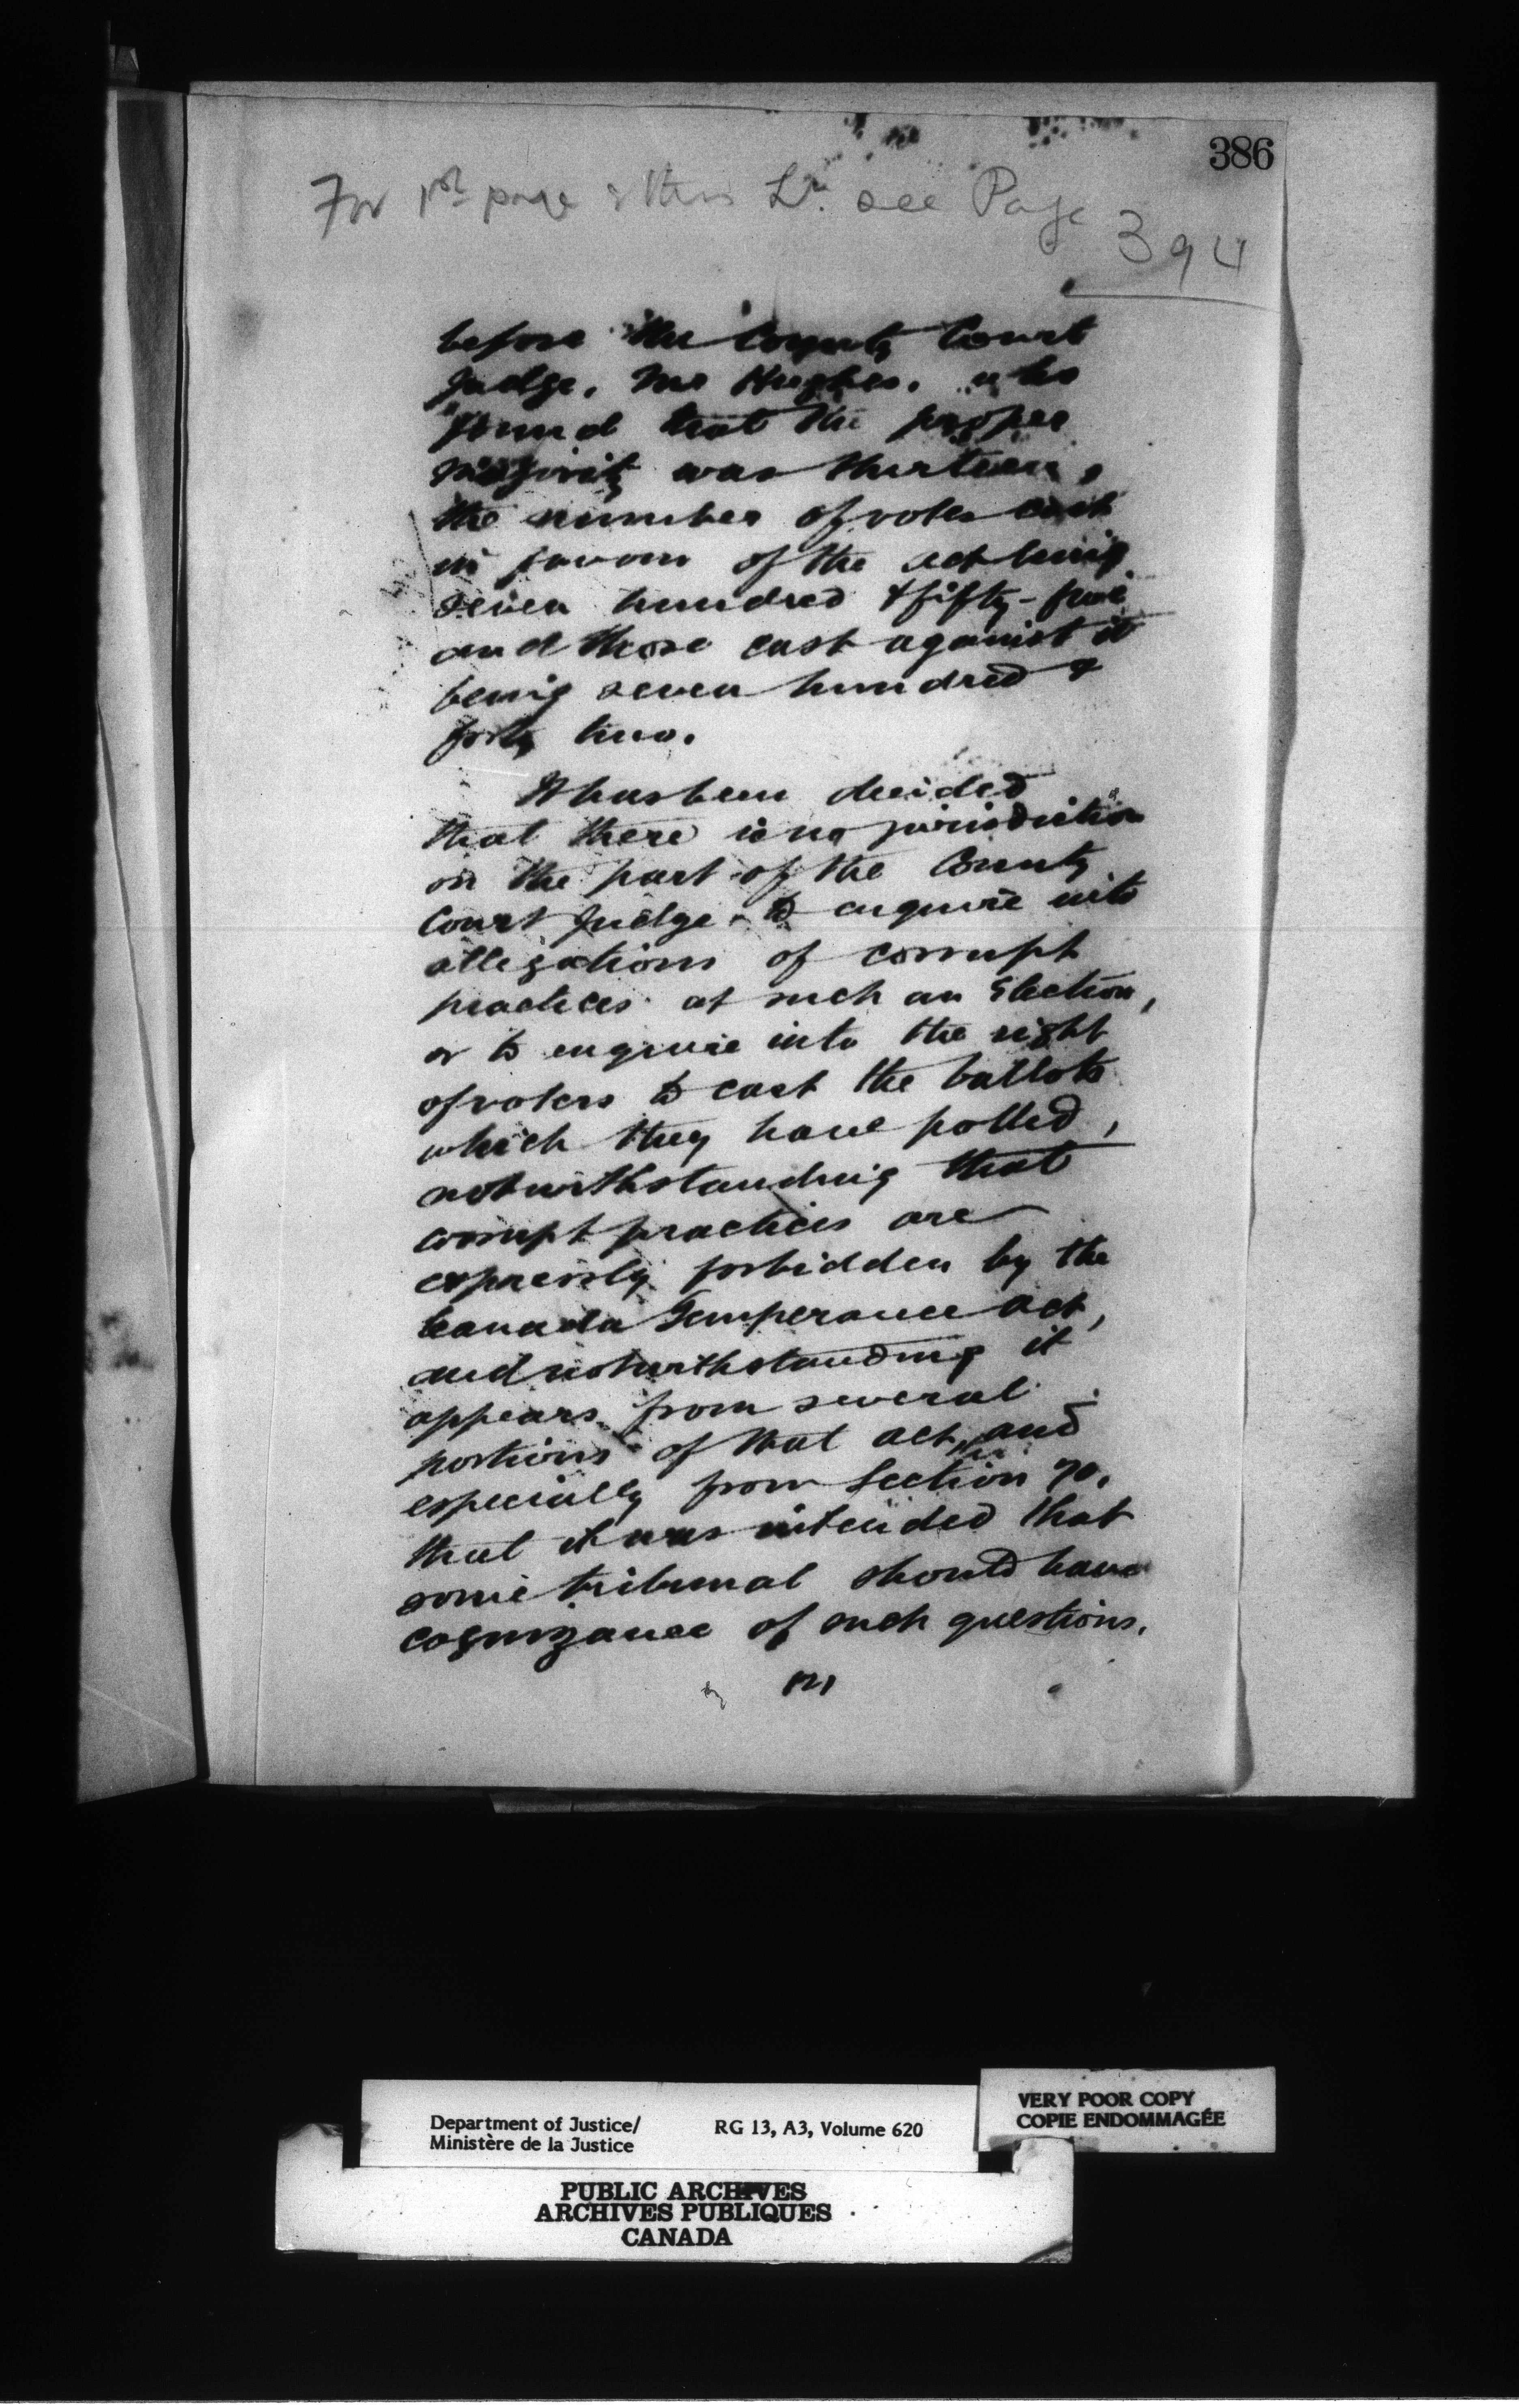 386
For 1st page of this Lr. see Page
394
before the County Court
Judge, Mr Hughes, who
found that the proper
majority was thirteen,
the number of votes cast
in favour of the act being
seven hundred & fifty-five
and those cast against it
being seven hundred &
forty two.
It has been decided
that there is no jurisdiction
on the part of the County
Court Judge to enquire into
allegations of corrupt
practices at such an Election,
or to enquire into the right
of voters to cast the ballots
which they have polled,
notwithstanding that
corrupt practices are
expressly forbidden by the
Canada Temperance Act,
and notwithstanding it
appears from several
portions of that act, and
especially from Section 70,
that it was intended that
some tribunal should have
cognizance of such questions.
Department of Justice/
Ministère de la Justice
RG 13, A3, Volume 620
VERY POOR COPY
COPIE ENDOMMAGÉE
PUBLIC ARCHIVES
ARCHIVES PUBLIQUES
CANADA